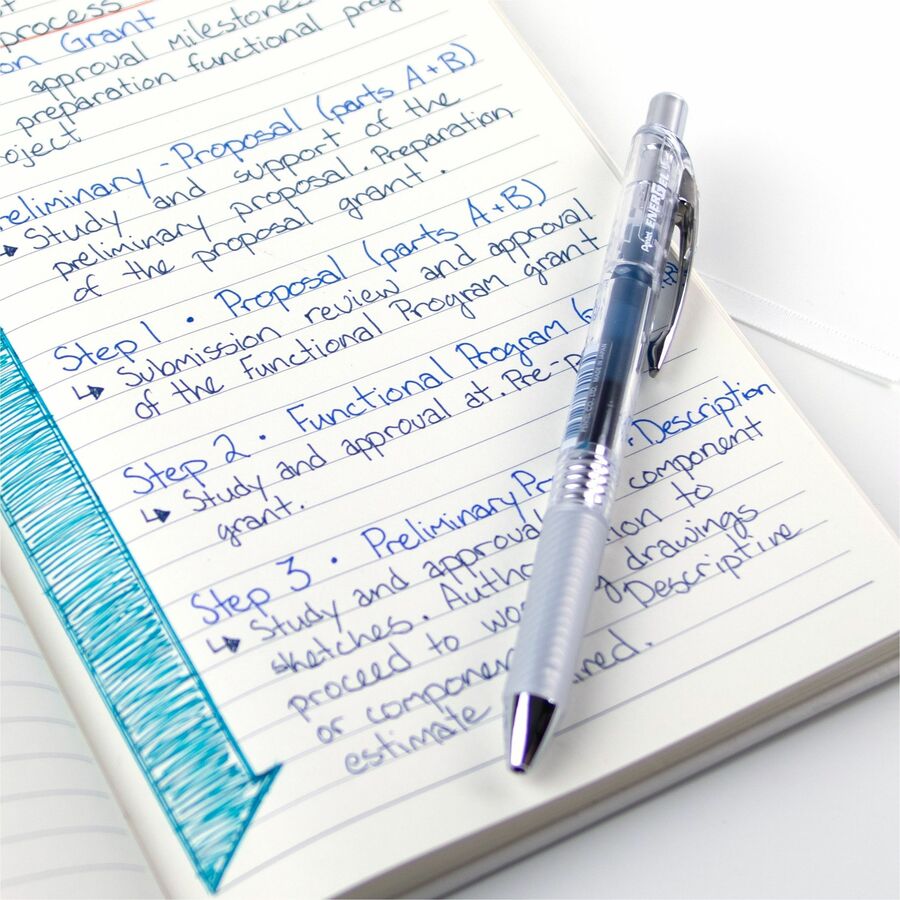 process
on Grant
approval milestones
preparation functional
oject
reliminary - Proposal (parts A+B)
Study and support of the
preliminary proposal. Preparation
of the proposal grant.
Step 1 • Proposal (parts A+B)
Submission review and approval
of the Functional Program grant
Step 2 • Functional Program (
Study and approval at. Pre-p
grant.
Step 3 • Preliminary Pr Description
Study and approval component
sketches. Autho tion to
proceed to wo g drawings
or componen Descriptive
estimate ired.
Pentel ENERGEL
MADE IN JAPAN